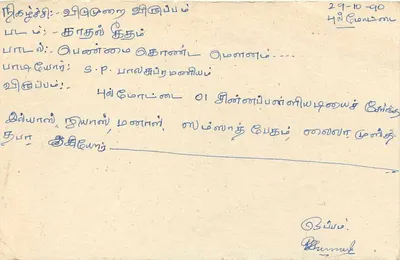 நிகழ்ச்சி:- விடுமுறை விருப்பம்
29-10-90
படம்:- காதல் கீதம்
புல்மோட்டை
பாடல்:- பெண்மை கொண்ட மௌனம்....
பாடியோர்: S.P. பாலசுப்ரமணியம்
விருப்பம்:-
புல்மோட்டை 01 சின்னப்பள்ளியடியைச் சேர்ந்த
இல்யாஸ், நியாஸ், மனாஸ், ஸம்ஸாத் பேகம், லைலா
ஆகியோர்
இப்படி